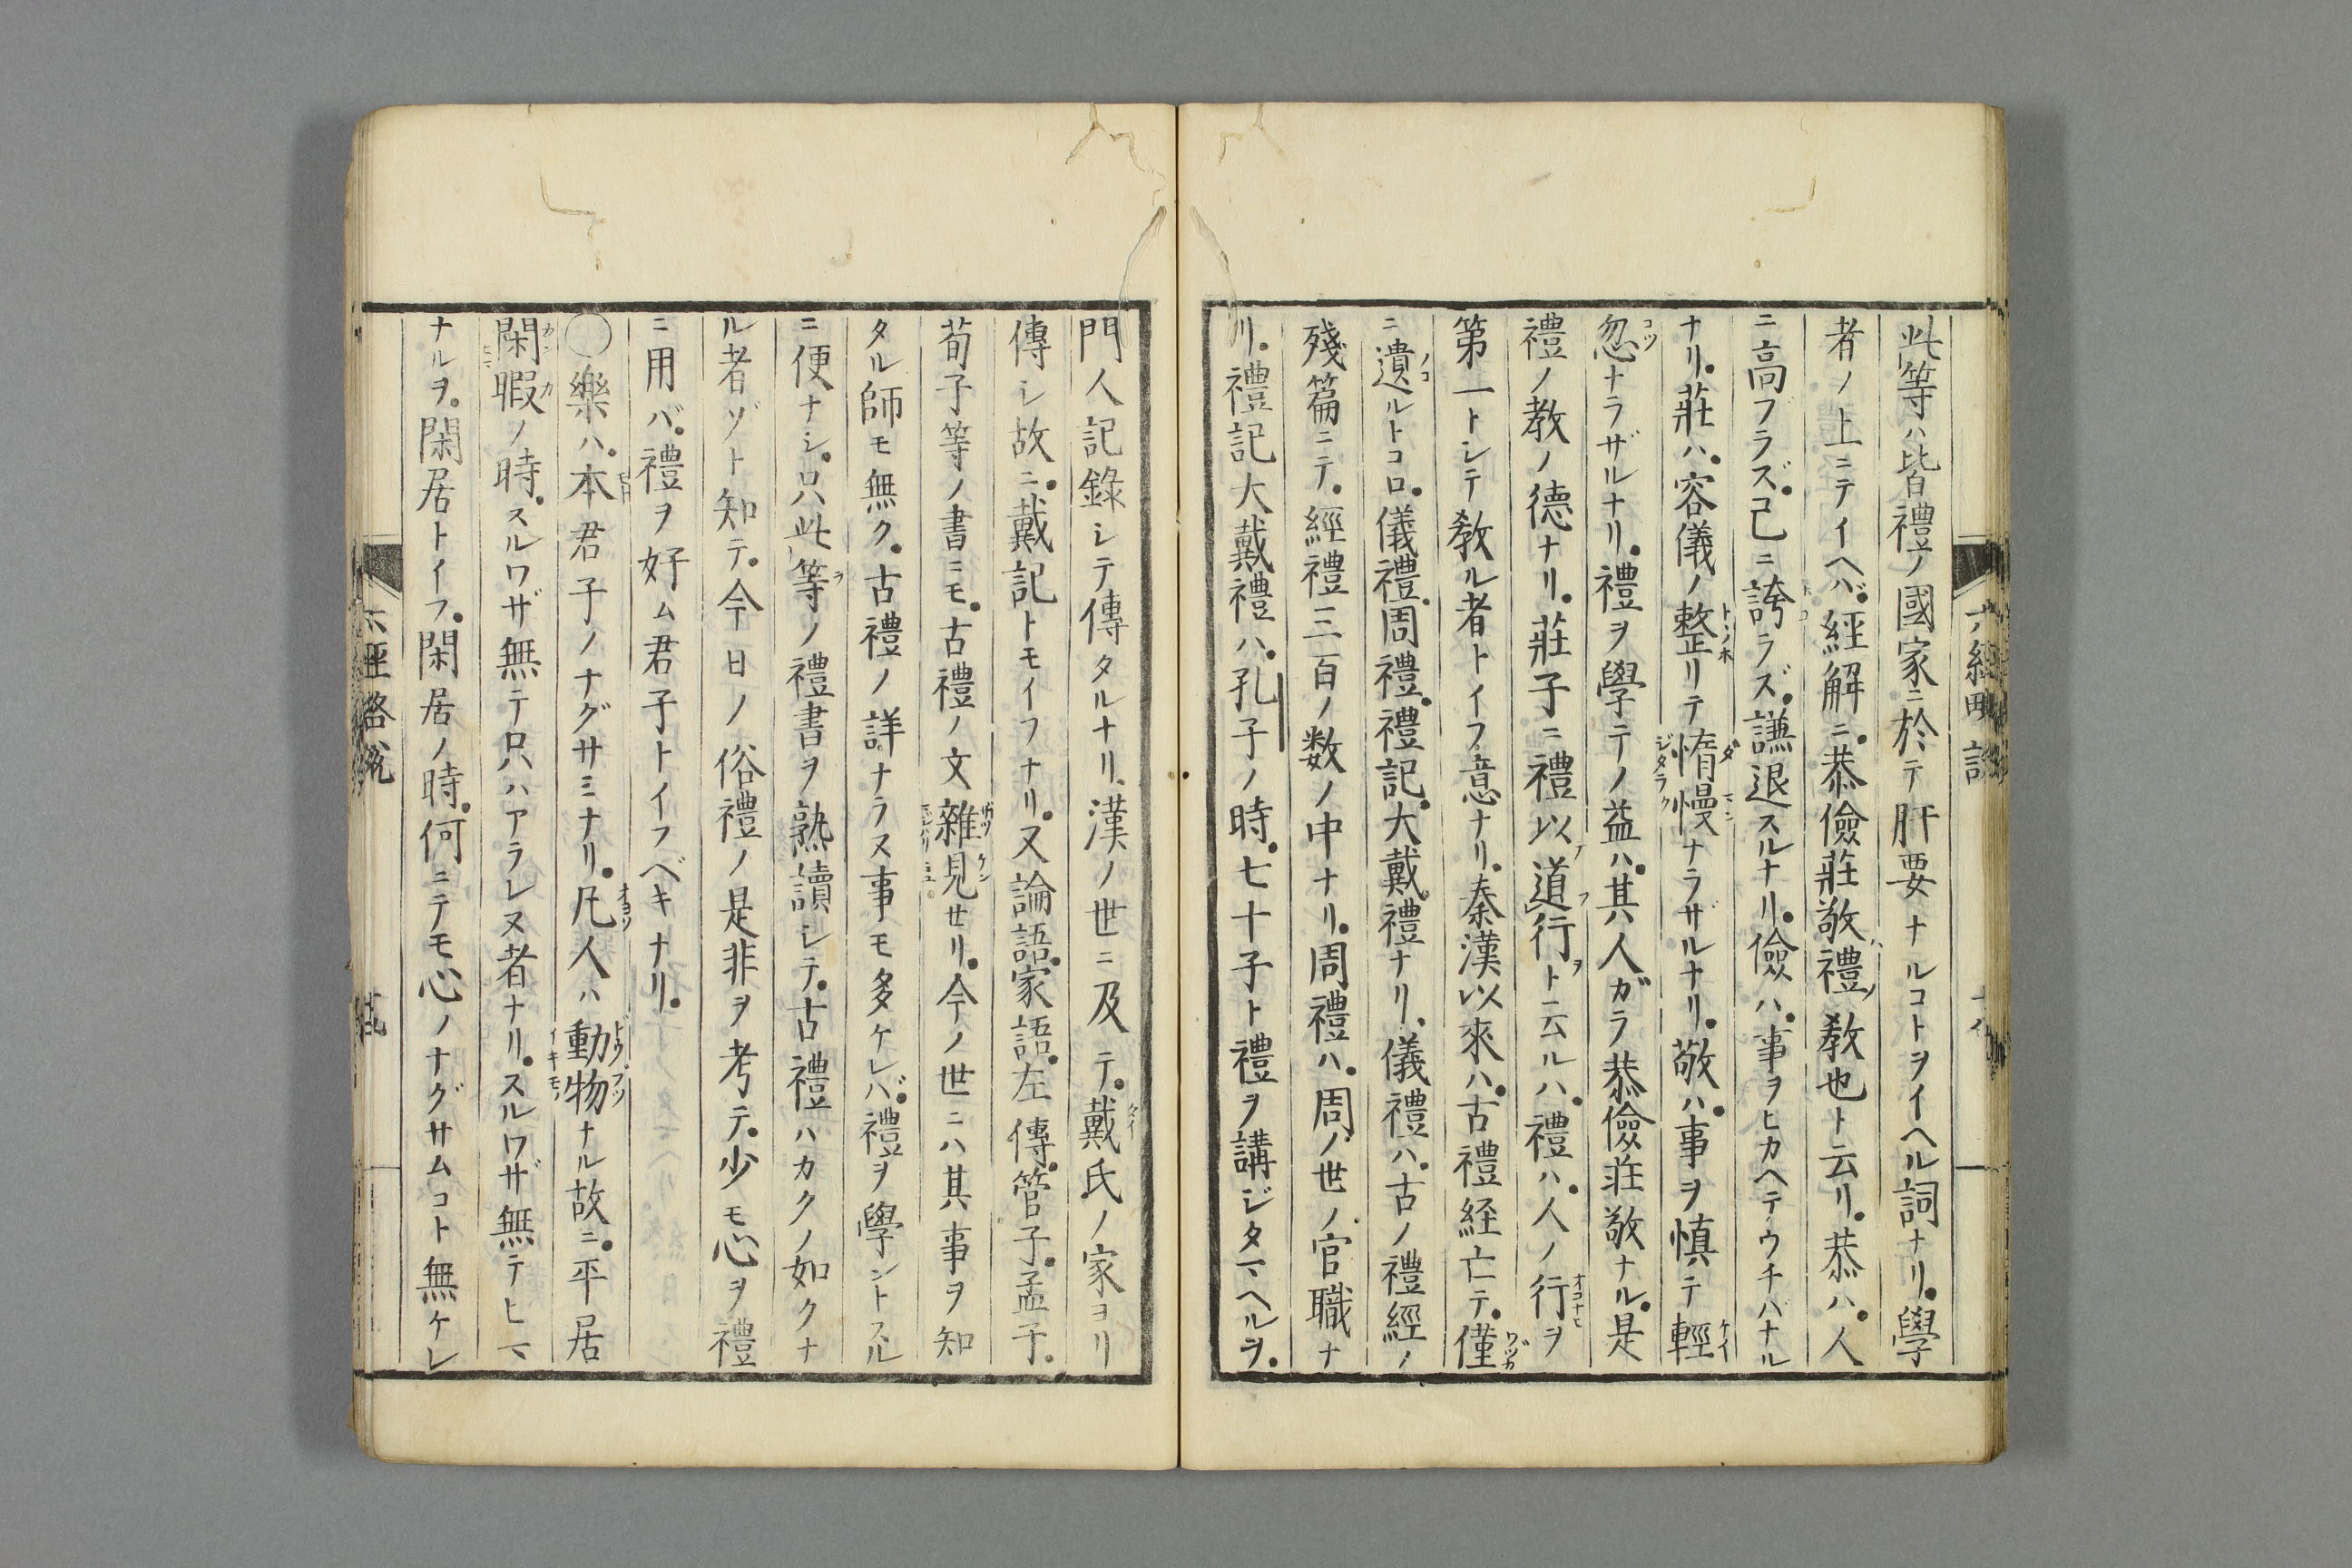 此等ハ皆禮ノ國家ニ於テ肝要ナルコトヲイヘル詞ナリ。學
者ノ上ニテイヘバ。經解ニ。恭儉莊敬禮ノ教也ト云リ。恭ハ。人
ニ高ブラズ。己ニ誇ラズ。謙退スルナリ。儉ハ。事ヲヒカヘテウチバナル
ナリ。莊ハ。容儀ノ整リテ惰慢ナラザルナリ。敬ハ。事ヲ慎テ輕
忽ナラザルナリ。禮ヲ學テノ益ハ。其人ガラ恭儉莊敬ナル。是
禮ノ教ノ德ナリ。莊子ニ禮以道行ト云ルハ。禮ハ。人ノ行ヲ
第一トシテ教ル者トイフ意ナリ。秦漢以來ハ。古禮経亡テ。僅
ニ遺ルトコロ。儀禮。周禮。禮記。大戴禮ナリ。儀禮ハ。古ノ禮經ノ
殘篇ニテ。經禮三百ノ数ノ中ナリ。周禮ハ。周ノ世ノ官職ナ
リ。禮記大戴禮ハ。孔子ノ時。七十子ト禮ヲ講ジタマヘルヲ。
門人記錄シテ傳タルナリ。漢ノ世ニ及テ。戴氏ノ家ヨリ
傳シ故ニ。戴記トモイフナリ。又論語。家語。左傳。管子。孟子。
荀子等ノ書ニモ。古禮ノ文雜見セリ。今ノ世ニハ其事ヲ知
タル師モ無ク。古禮ノ詳ナラヌ事モ多ケレバ。禮ヲ學ントスル
ニ便ナシ。只此等ノ禮書ヲ熟讀シテ。古禮ハカクノ如クナ
ル者ゾト知テ。今日ノ俗禮ノ是非ヲ考テ。少モ心ヲ禮
ニ用バ。禮ヲ好ム君子トイフベキナリ。
○樂ハ。本君子ノナグサミナリ。凡人ハ動物ナル故ニ。平居
閑暇ノ時。スルワザ無テ只ハアラレヌ者ナリ。スルワザ無テヒマ
ナルヲ。閑居トイフ。閑居ノ時。何ニテモ心ノナグサムコト無ケレ
六經略說